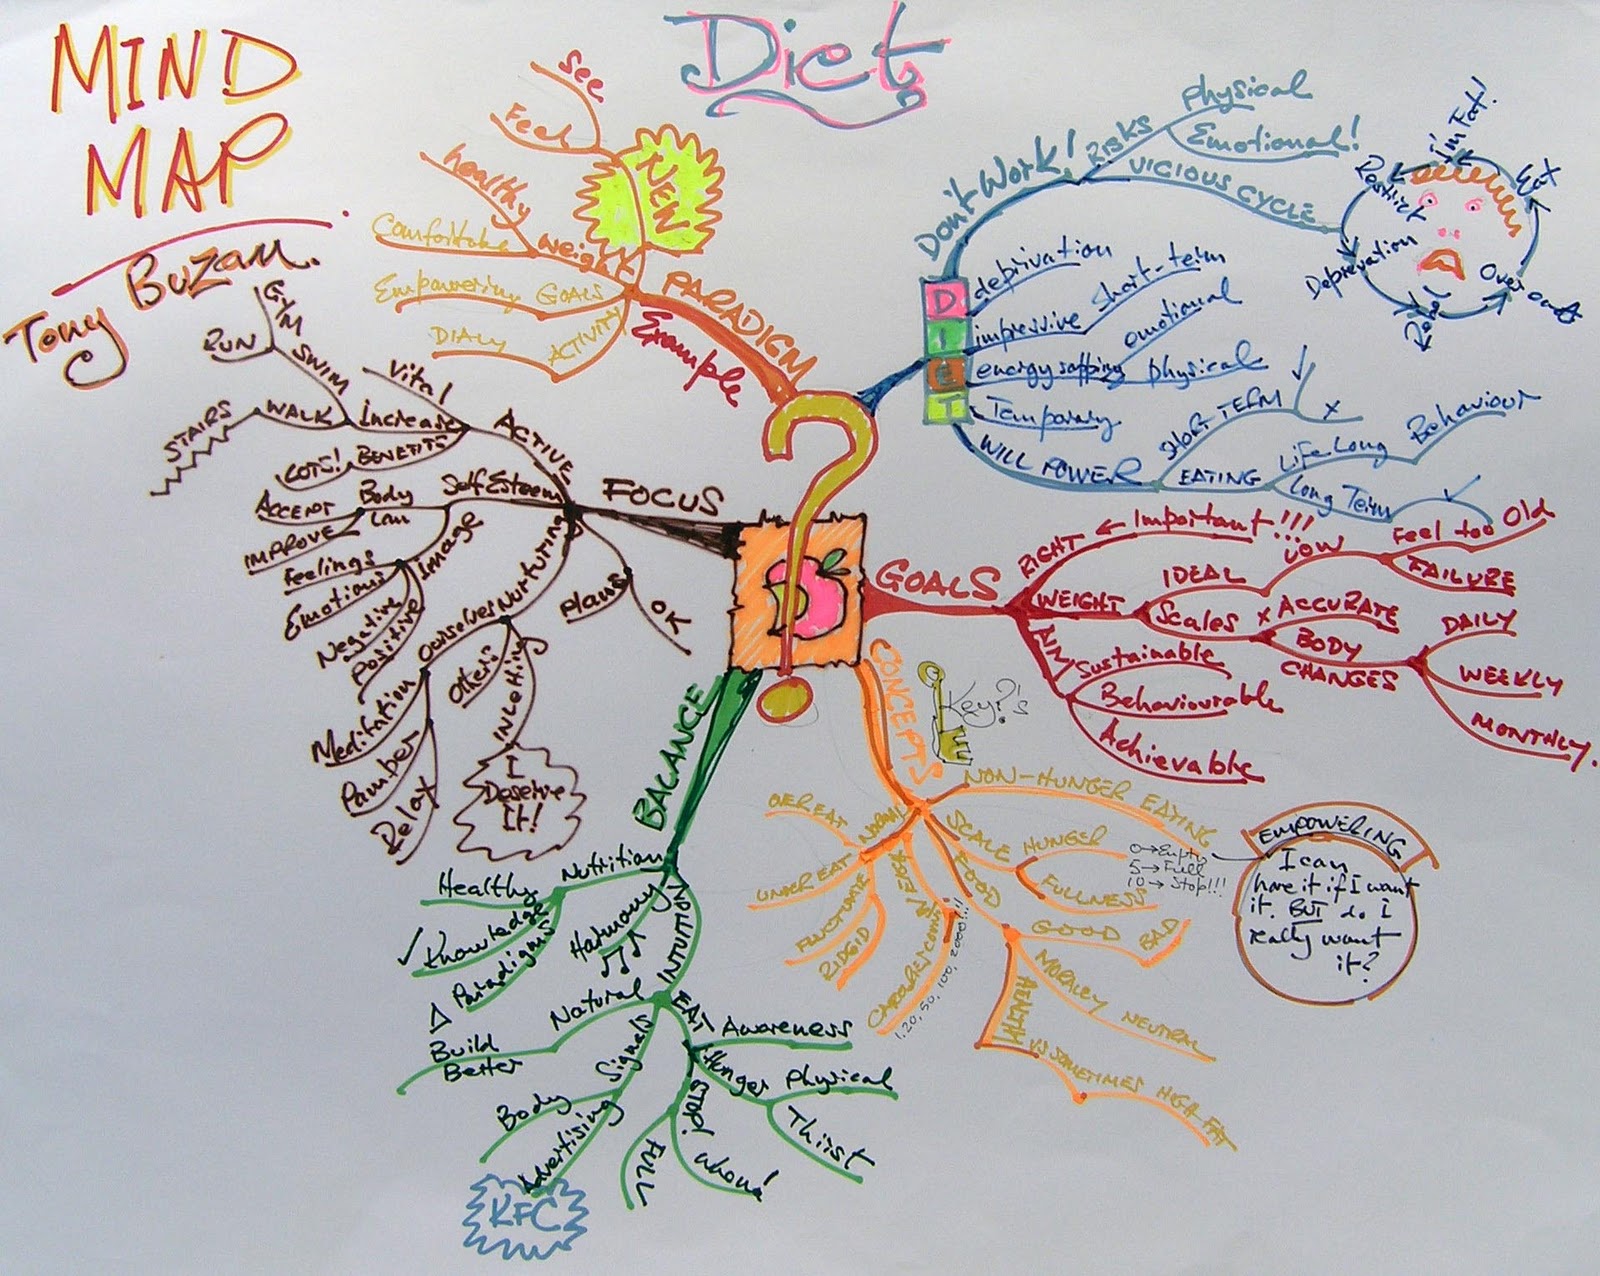 MIND
MAP
Tony Buzan.
Diet
See
Feel
NEW
healthy
weight
Comfortable
Empowering GOALS
DIALY
ACTIVITY
PARADIGM
Example
Don't Work!
RISKS
Physical
Emotional!
VICIOUS CYCLE
I'm Fat!
Restrict
Eat
Over eat
DIET
deprivation
impressive short-term
energy sapping
emotional
physical
Temporary
WILL POWER
SHORT TERM
✓
x
EATING
Life Long Behaviour
Long Term ✓
FOCUS
ACTIVE
Vital
Increase
GYM
RUN
SWIM
WALK
STAIRS
LOTS! BENEFITS
Self Esteem
Body
ACCEPT
IMPROVE
Image
feelings
Emotions
Negative
Positive
NURTURING
Ourselves
Others
Meditation
Pamber
Relax
I
Deserve
It!
Plans
OK
GOALS
RIGHT ← Important!!!
WEIGHT
IDEAL
LOW
Feel too Old
FAILURE
Scales x ACCURATE
BODY
CHANGES
DAILY
WEEKLY
MONTHLY.
AIM
Sustainable
Behaviourable
Achievable
CONCEPTS
Key?'s
NON-HUNGER EATING
SCALE HUNGER
FULLNESS
0→Empty
5→Full
10→Stop!!!
EMPOWERING
I can
have it if I want
it. BUT do I
really want
it?
NORMAL
OVER EAT
UNDER EAT
FLUCTUATE
RIDGID
1, 20, 50, 100, 2000!!!
FOOD
GOOD BAD
MORALLY NEUTRAL
HEALTH
VS SOMETIMES HIGH FAT
BALANCE
Nutrition
Healthy
✓ Knowledge
Δ Paradigms
Harmony
INTUITION
Natural
Build
Better
Signals
Body
Advertising
KFC
EAT
Awareness
Hunger Physical
Thirst
STOP!
FULL
Whoa!